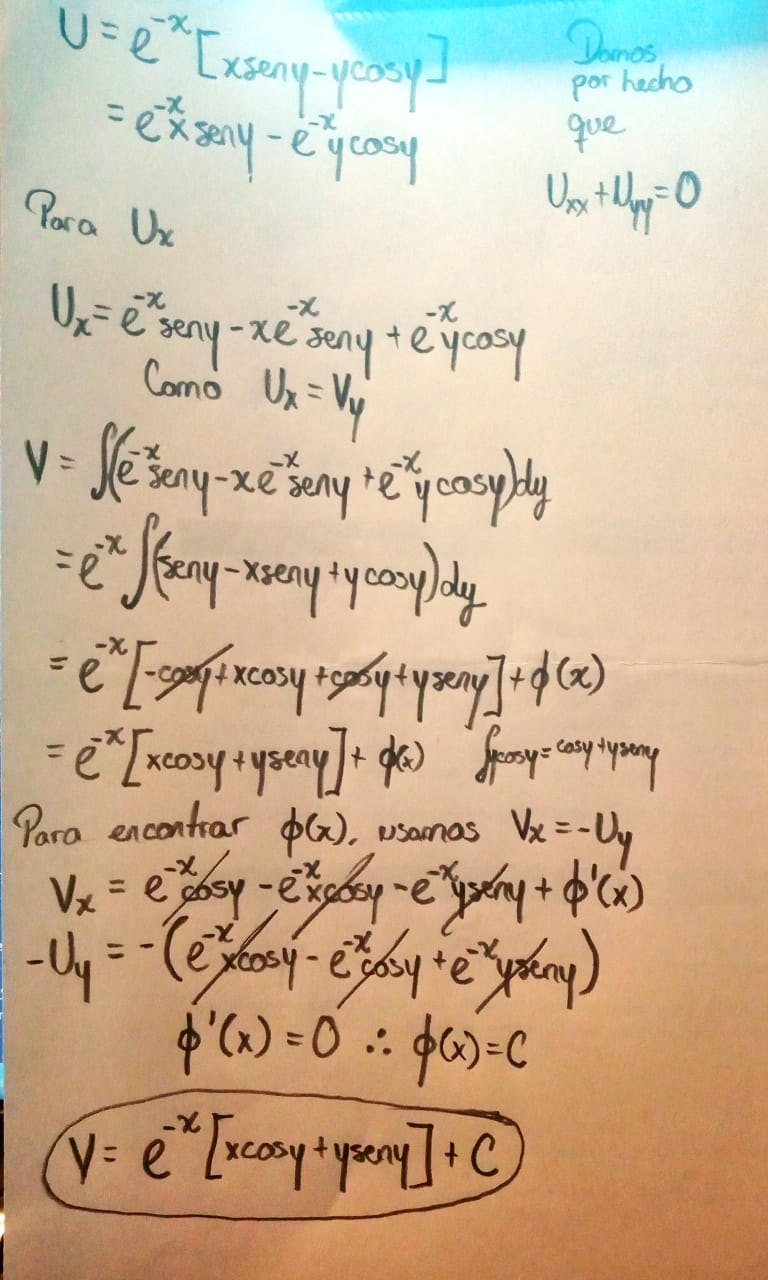 U = e^-x [xseny - ycosy]
= e^-x x seny - e^-x ycosy
Damos
por hecho
que
Uxx + Uyy = 0
Para Ux
Ux = e^-x seny - xe^-x seny + e^-x ycosy
Como Ux = Vy
V = ∫(e^-x seny - xe^-x seny + e^-x y cosy)dy
= e^-x ∫(seny - xseny + y cosy)dy
= e^-x [-cosy + xcosy + cosy + yseny] + ϕ(x)
= e^-x [xcosy + yseny] + ϕ(x) ∫ycosy = cosy + yseny
Para encontrar ϕ(x), usamos Vx = -Uy
Vx = e^-x cosy - e^-x xcosy - e^-x yseny + ϕ'(x)
-Uy = -(e^-x xcosy - e^-x cosy + e^-x yseny)
ϕ'(x) = 0 ∴ ϕ(x) = C
V = e^-x [xcosy + yseny] + C